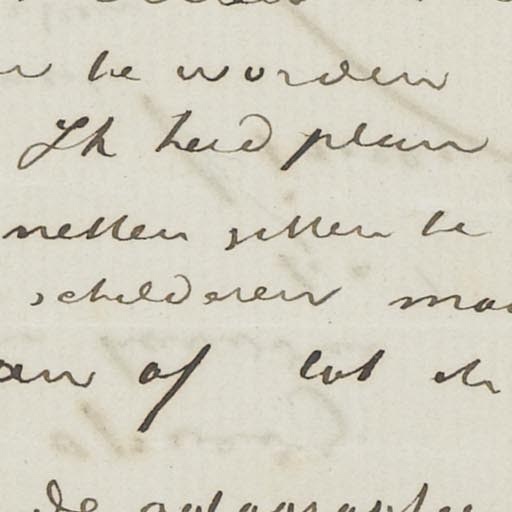 te worden
Ik had plan
netten zetten te
schilderen maa
an af tot ik
de